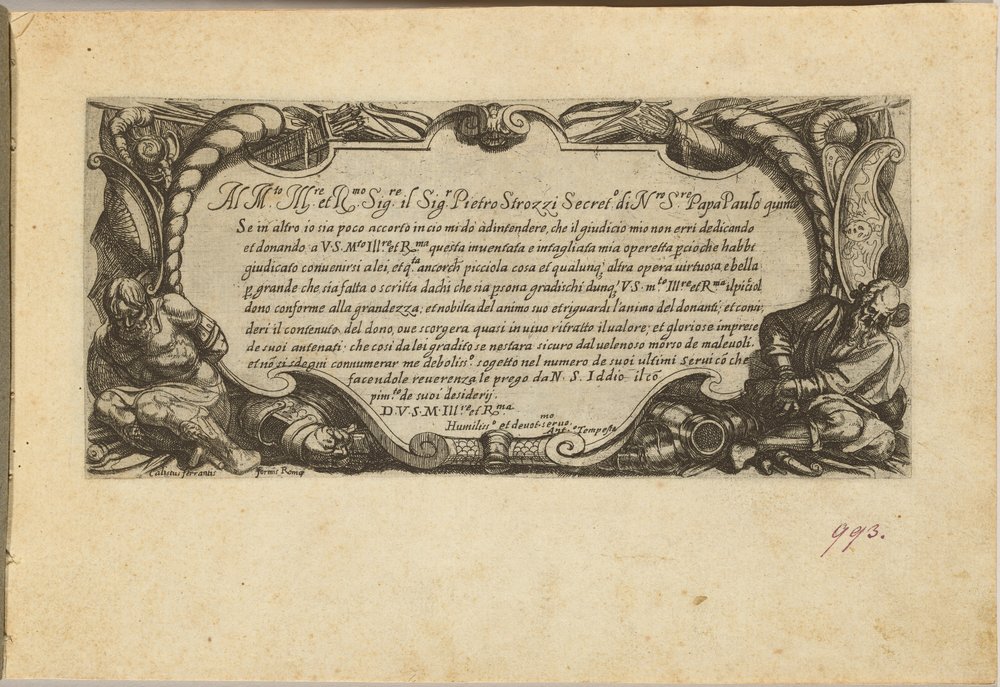 Al M.to Ill.re et R.mo Sig.re il Sig.r Pietro Strozzi Secret.o di N.ro S.re Papa Paulo quinto
Se in altro io sia poco accorto in cio mi dò àdintendere, che il giudicio mio non erri dedicando
et donando a V.S. M.to Ill.re et R.ma questa inuentata e intagliata mia operetta pcioche habbi
giudicato conuenirsi alei, et q.ta ancorch picciola cosa et qualunq; altra opera uirtuosa, e bella
p grande che sia fatta o scritta dachi che sia p.rona gradischi dunq; V.S. m.to Ill.re et R.ma il piciol
dono conforme alla grandezza, et nobilta del animo suo et riguardi l'animo del donanti, et consi
deri il contenuto del dono, oue scorgera quasi in uiuo ritratto il ualore, et gloriose imprese
de suoi antenati, che cosi da lei gradito se nestara sicuro dal uelenoso morso de maleuoli.
et nō si sdegni connumerar me deboliss.o sogetto nel numero de suoi ultimi serui cō che
facendole reuerenza le prego da N. S. Iddio il cō
pim.to de suoi desiderij.
D.V.S.M. Ill.re et R.ma
Humiliss.o et deuot.mo seruo
Ant.o Tempesta
Calistus ferrantes formis Romę
993.